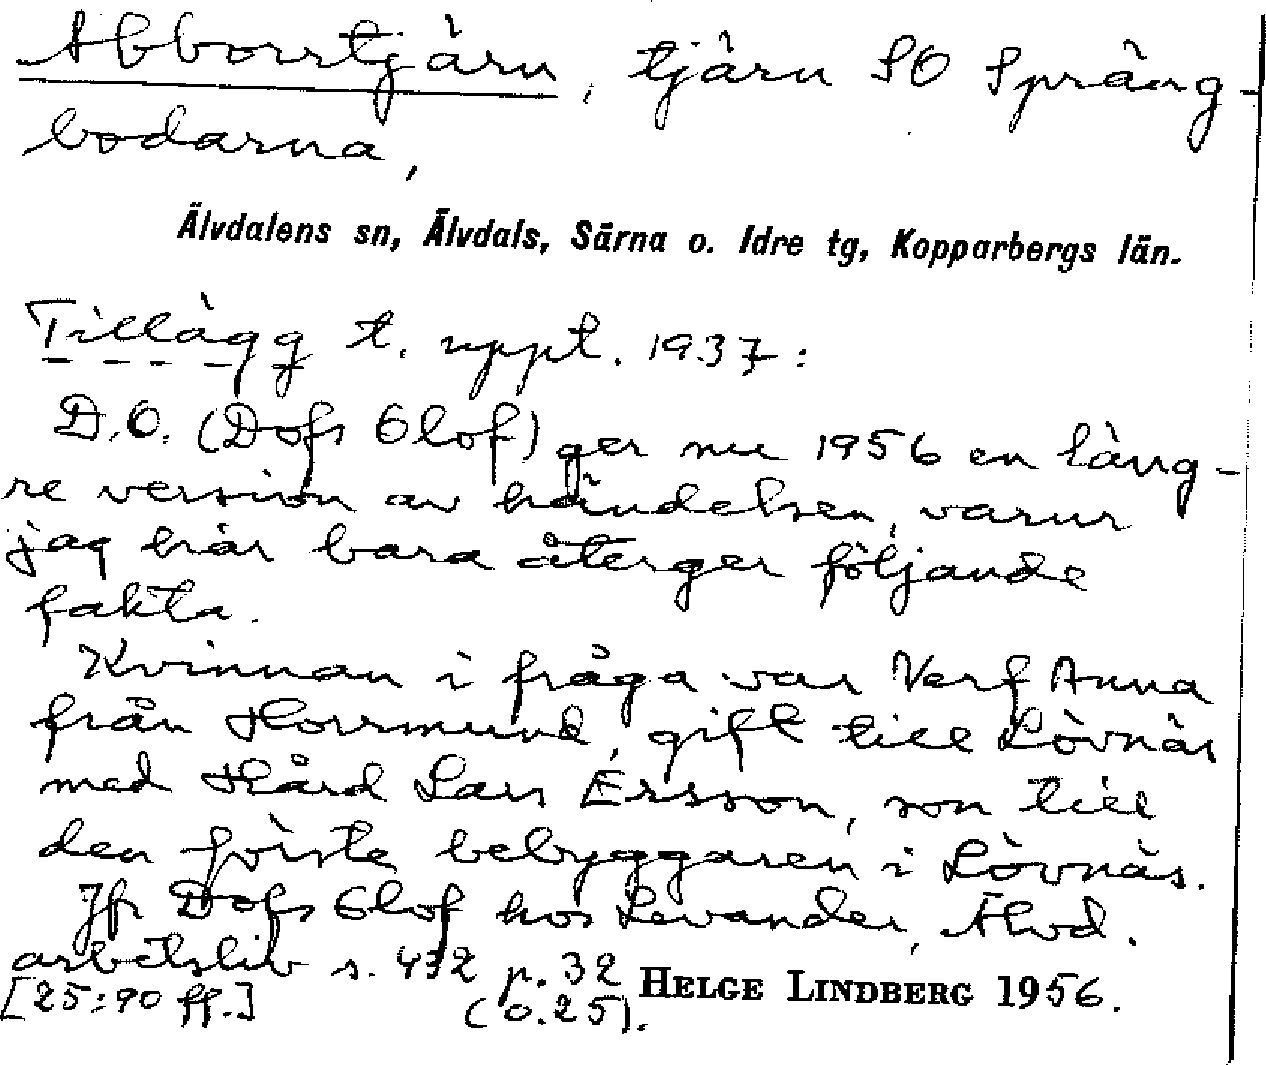 Abborrtjärn, tjärn SO Spräng-
bodarna,
Älvdalens sn, Älvdals, Särna o. Idre tg, Kopparbergs län.
Tillägg t. uppt. 1937:
D.O. (Dofs Olof) ger nu 1956 en läng-
re version av händelsen, varur
jag här bara återger följande
fakta.
Kvinnan i fråga var Verf Anna
från Horrmund, gift till Lövnäs
med Hård Lars Ersson, son till
den förste bebyggaren i Lövnäs.
Jfr Dofs Olof hos Levander, Älvd.
arbetsliv s. 432 p. 32
[25:90 ff.] (o. 25).
HELGE LINDBERG 1956.